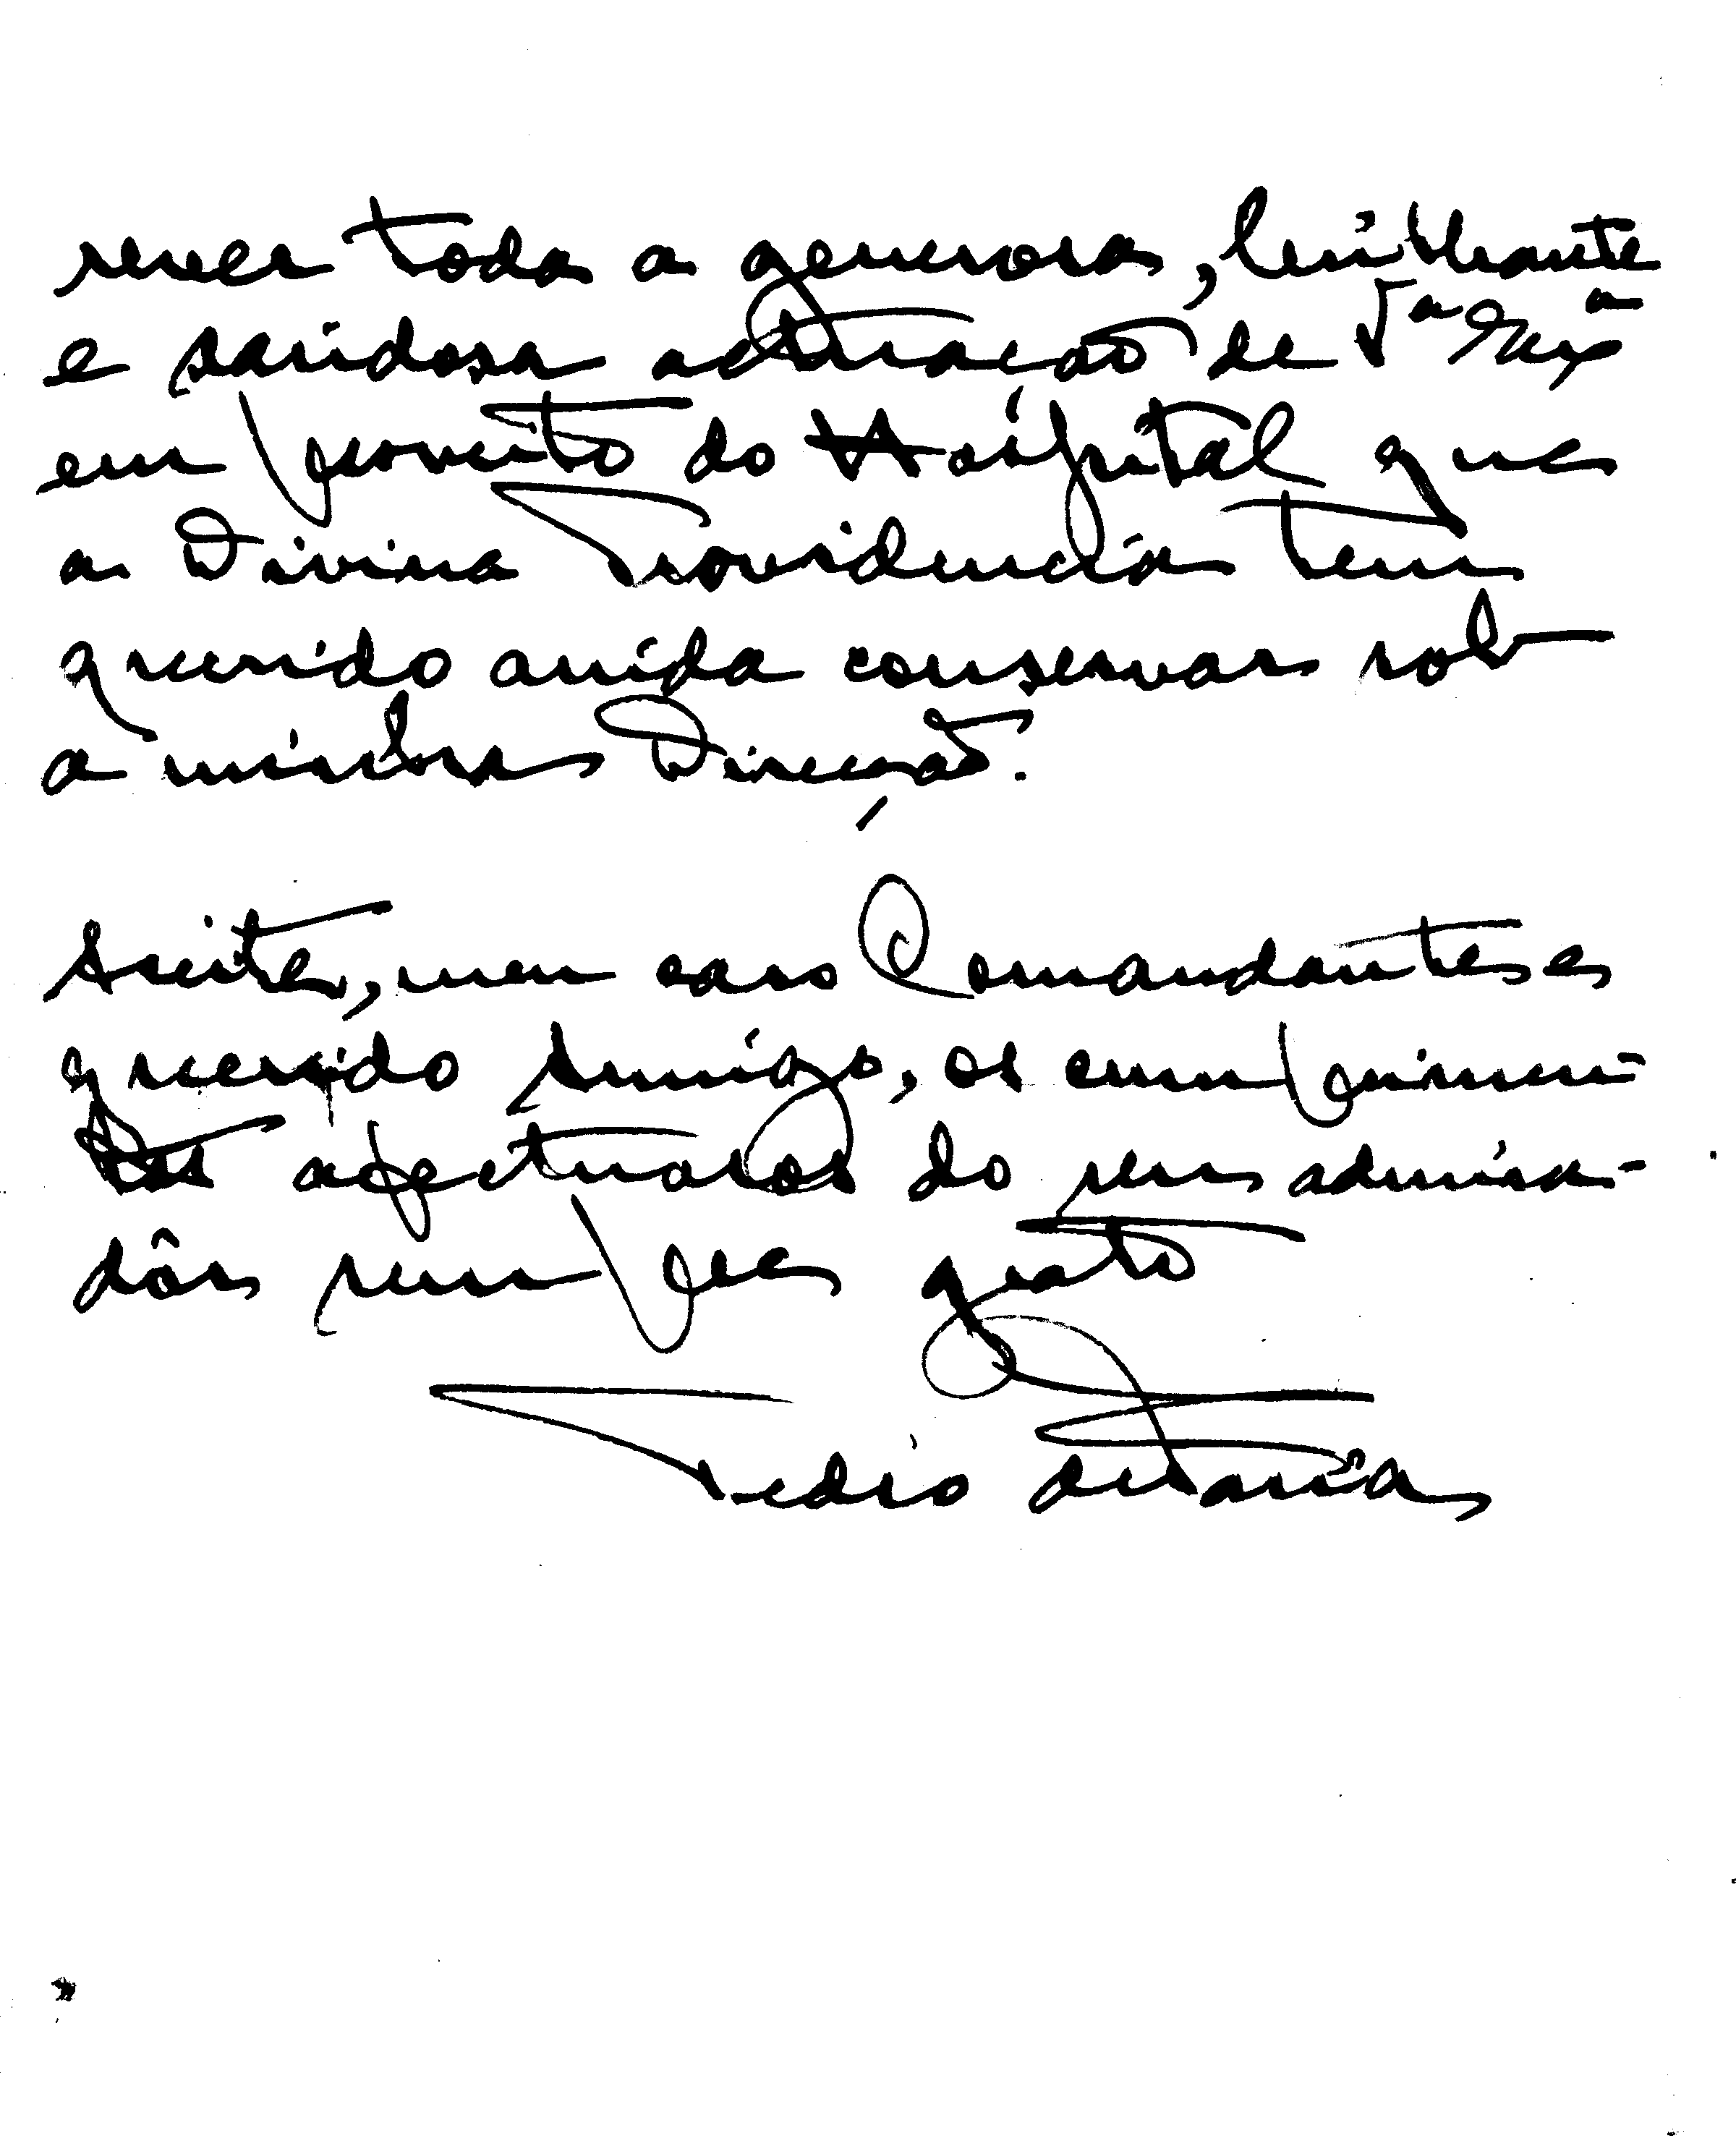 rever toda a generosa, brilhante
e saudosa actuação de Vª Exª
em proveito do Hospital que
a Divina Providencia tem
querido ainda conservar sob
a minha Direcção.
Aceite, meu caro Comandante e
querido Amigo, os cumprimen-
tos afectuosos do seu admira-
dôr sempre grato
Pedro